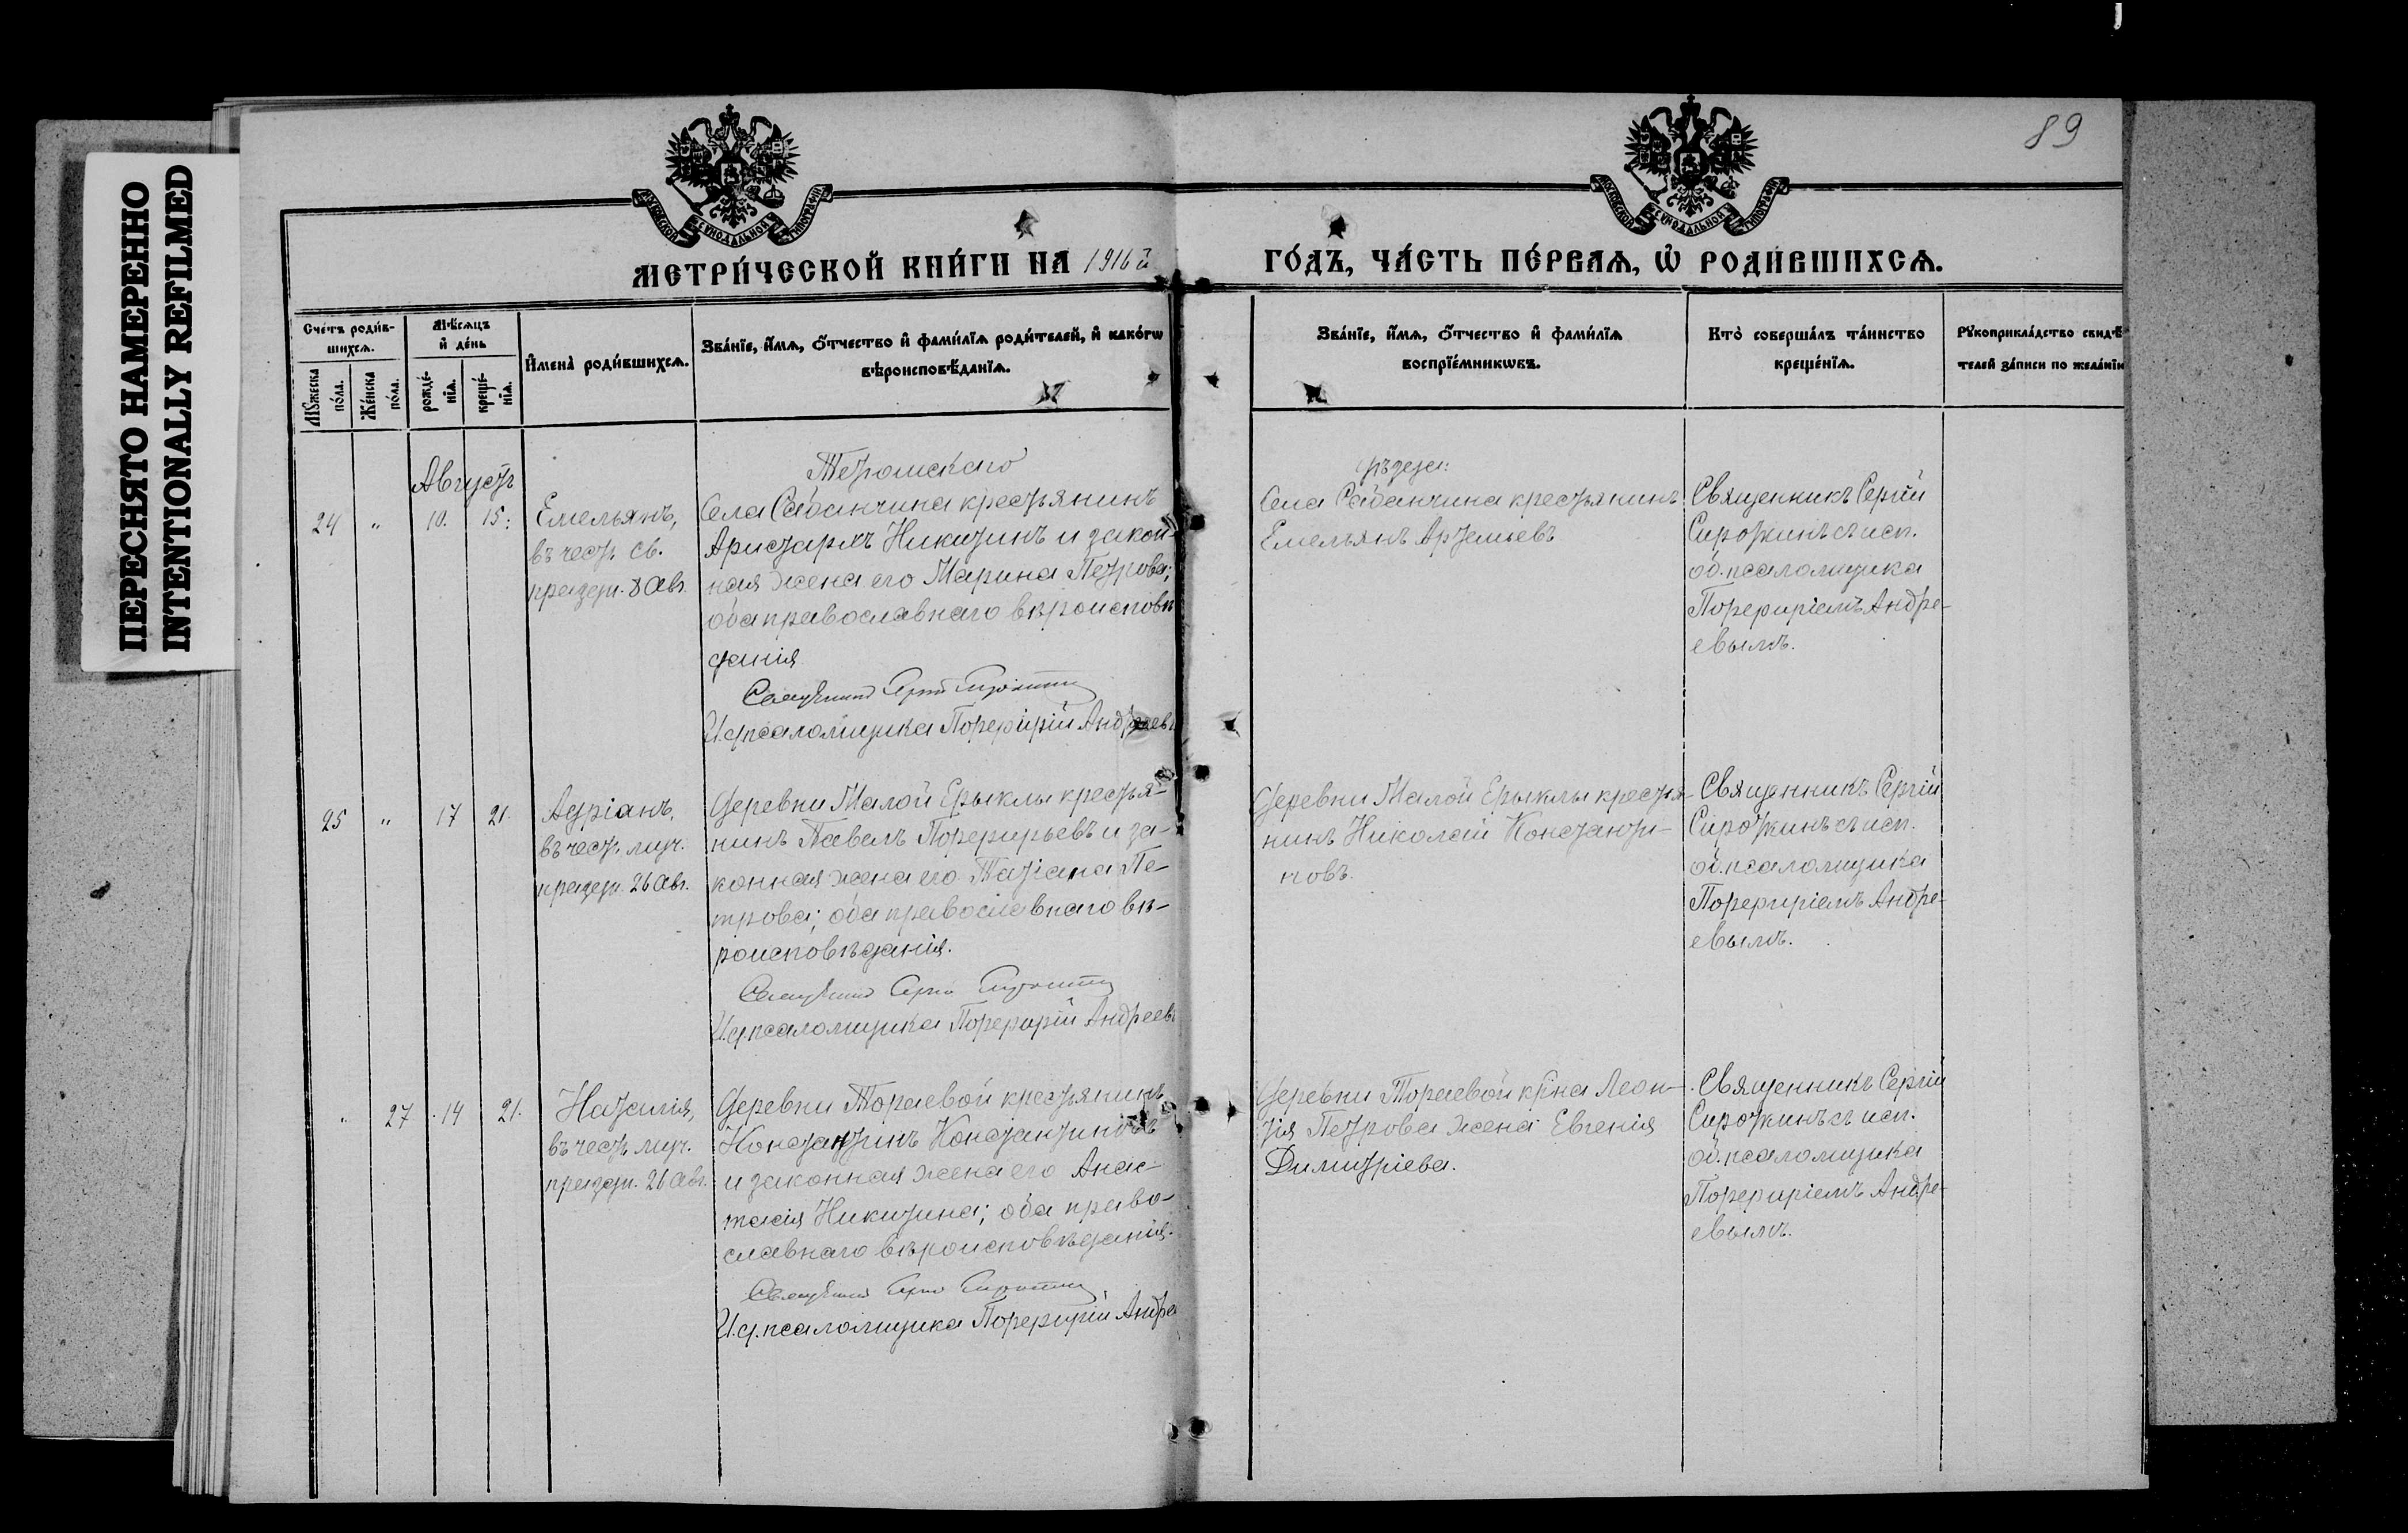 ПЕРЕСНЯТО НАМЕРЕННО
INTENTIONALLY REFILMED
89
МОСКОВСКОЙ СѴНОДАЛЬНОЙ ТИПОГРАФІИ
МОСКОВСКОЙ СѴНОДАЛЬНОЙ ТИПОГРАФІИ
МЕТРИ́ЧЕСКОЙ КНИ́ГИ НА 1916й
ГО́ДЪ, ЧА́СТЬ ПЕ́РВАѦ, Ѡ҆ РОДИ́ВШИХСѦ.
Сче́тъ роди́в-
шихсѧ.
Мꙋ́жеска
по́ла.
Же́нска
по́ла.
Мѣ́сѧцъ
и҆ де́нь
рожде́-
нїѧ.
креще́-
нїѧ.
И҆мена̀ роди́вшихсѧ.
Зва́нїе, и҆́мѧ, ѻ҆́тчество и҆ фами́лїѧ роди́телей, и҆ како́гѡ
вѣроисповѣ́данїѧ.
Зва́нїе, и҆́мѧ, ѻ҆́тчество и҆ фами́лїѧ
воспрїе́мникѡвъ.
Кто̀ соверша́лъ та́инство
креще́нїѧ.
Рꙋкоприкла́дство свидѣ́-
телей за́писи по жела́нїю
Августъ
24 „ 10. 15:
Емельянъ,
въ честь св.
праздн. 8 Авг.
Тетюшскаго
Села Сабанчина крестьянинъ
Аристархъ Никитинъ и закон-
ная жена его Марина Петрова;
оба православнаго вѣроисповѣ
данія
Священникъ Сергій Сироткинъ
И.д.псаломщика Порфирій Андреевъ
уѣзда:
Села Сабанчина крестьянинъ
Емельянъ Артемьевъ
Священникъ Сергій
Сироткинъ съ исп.
об. псаломщика
Порфиріемъ Андре-
евымъ.
25 „ 17 21.
Адріанъ,
въ честь муч.
праздн. 26 Авг.
Деревни Малой Ерыклы крестья-
нинъ Павелъ Порфирьевъ и за-
конная жена его Татіана Пе-
трова; оба православнаго вѣ-
роисповѣданія.
Священникъ Сергій Сироткинъ
И.д.псаломщика Порфирій Андреевъ
Деревни Малой Ерыклы крестья-
нинъ Николай Константи-
новъ.
Священникъ Сергій
Сироткинъ съ исп.
об. псаломщика
Порфиріемъ Андре-
евымъ.
„ 27 14 21.
Наталія,
въ честь муч.
праздн. 26 Авг.
Деревни Тораевой крестьянинъ
Константинъ Константиновъ
и законная жена его Анас-
тасія Никитина; оба право-
славнаго вѣроисповѣданія.
Священникъ Сергій Сироткинъ
И.д.псаломщика Порфирій Андре
Деревни Тораевой кр̃на Леон-
тія Петрова жена Евгенія
Димитріева.
Священникъ Сергій
Сироткинъ съ исп.
об. псаломщика
Порфиріемъ Андре-
евымъ.